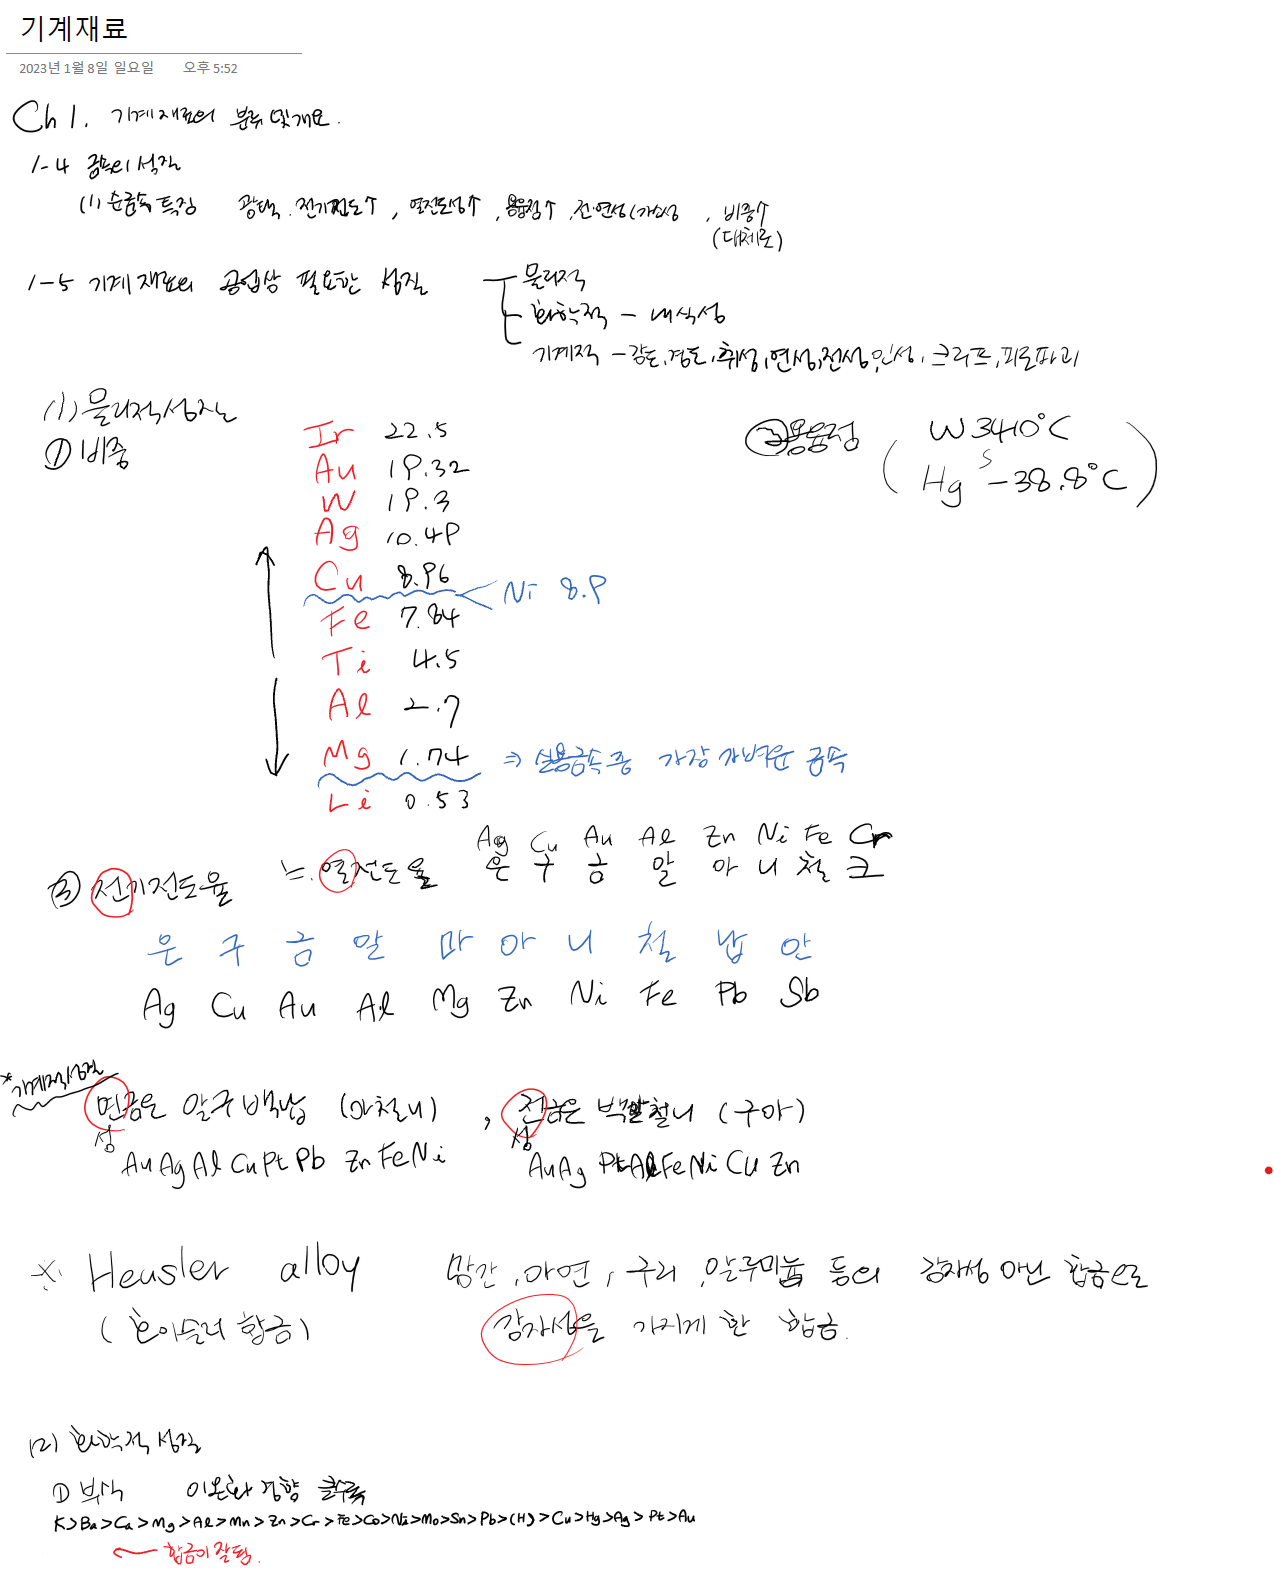 기계재료
2023년 1월 8일 일요일 오후 5:52
Ch 1. 기계재료의 분류 및 개요.
1-4 금속의 성질
(1) 순금속 특징 광택. 전기전도↑, 열전도성↑, 용융점↑, 전연성(가소성, 비중↑
(대체로)
1-5 기계재료의 공업상 필요한 성질
물리적
화학적 - 내식성
기계적 - 강도, 경도, 취성, 연성, 전성, 인성, 크리프, 피로파괴
(1) 물리적성질
① 비중
Ir 22.5
Au 19.32
W 19.3
Ag 10.49
Cu 8.96
Ni 8.9
Fe 7.84
Ti 4.5
Al 2.7
Mg 1.74 ⇒ 실용금속 중 가장 가벼운 금속
Li 0.53
②용융점 ( W 3410℃
S
Hg -38.8℃ )
Ag Cu Au Al Zn Ni Fe Cr
③ 전기전도율 ≒. 열전도율 은 구 금 알 아 니 철 크
은 구 금 알 마 아 니 철 납 안
Ag Cu Au Al Mg Zn Ni Fe Pb Sb
*기계적성질
연금은 알구백납 (아철니) , 전금은 백알철니 (구아)
성 성
Au Ag Al Cu Pt Pb Zn Fe Ni
Au Ag Pt Al Fe Ni Cu Zn
※ Heusler alloy 망간, 아연, 구리, 알루미늄 등의 강자성 아닌 합금으로
(호이슬러 합금) 강자성을 가지게 한 합금.
(2) 화학적 성질
① 부식 이온화 경향 클수록
K>Ba>Ca>Mg>Al>Mn>Zn>Cr>Fe>Co>Ni>Mo>Sn>Pb>(H)>Cu>Hg>Ag>Pt>Au
합금이 잘됨.